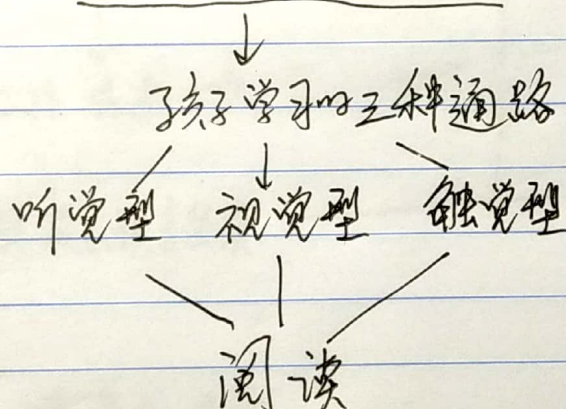 孩子学习的三种通路
听觉型 视觉型 触觉型
阅读